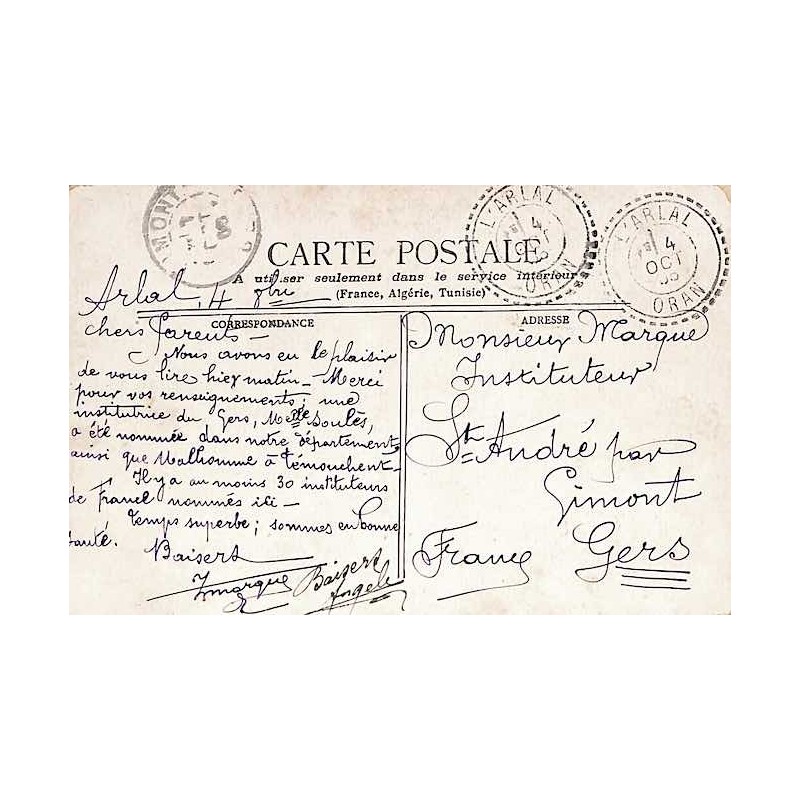 GIMONT
L'ARLAL
4
OCT
ORAN
L'ARLAL
4
OCT
ORAN
CARTE POSTALE
A utiliser seulement dans le service intérieur
(France, Algérie, Tunisie)
Arlal, 4 8bre
CORRESPONDANCE
chers Parents –
Nous avons eu le plaisir
de vous lire hier matin – Merci
pour vos renseignements; une
institutrice du Gers, Melle Soulès,
a été nommée dans notre département
ainsi que Malhomme à Témouchent –
Il y a au moins 30 instituteurs
de France nommés ici –
Temps superbe; sommes en bonne
santé.
Baisers
Zmarque
Baisers
Angèle
ADRESSE
Monsieur Marque
Instituteur
St. André par
Gimont
France Gers